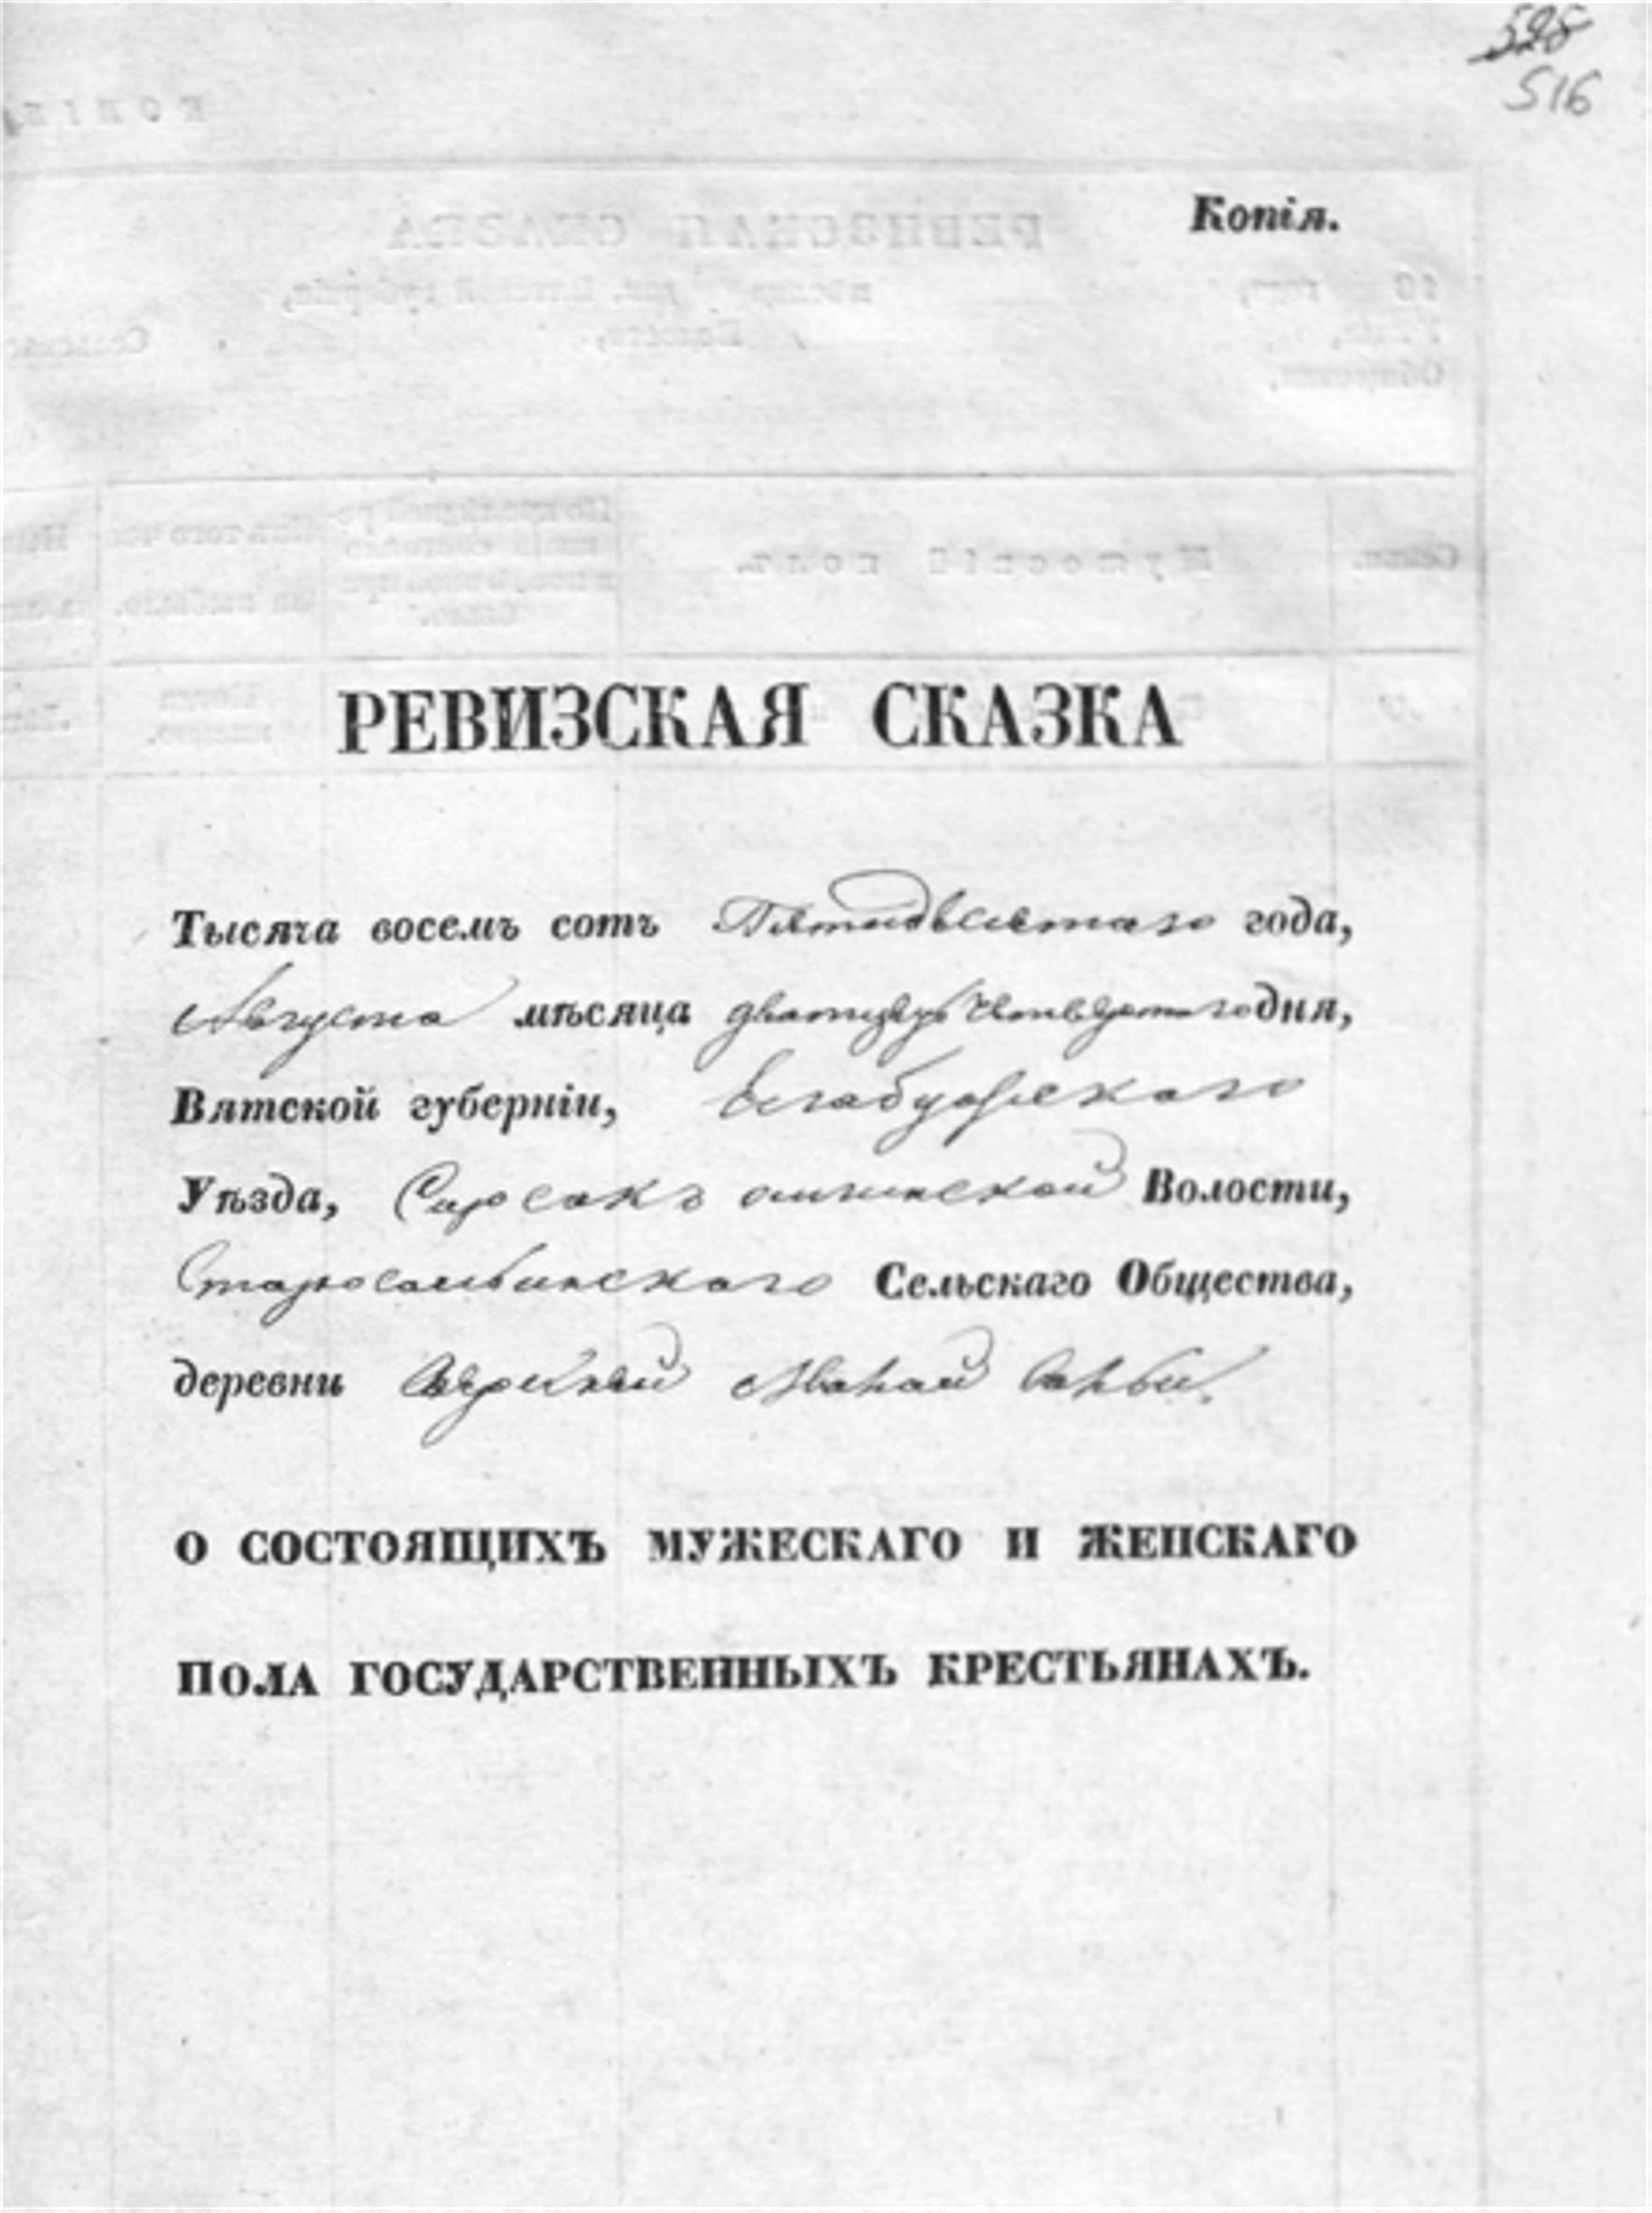 528
516
Копія.
РЕВИЗСКАЯ СКАЗКА
Тысяча восемъ сотъ Пятидесятаго года,
Августа мѣсяца дватцать четвертаго дня,
Вятской губерніи, Елабужскаго
Уѣзда, Сарсакъ омгинской Волости,
Сельскаго Общества,
деревни
О СОСТОЯЩИХЪ МУЖЕСКАГО И ЖЕНСКАГО
ПОЛА ГОСУДАРСТВЕННЫХЪ КРЕСТЬЯНАХЪ.